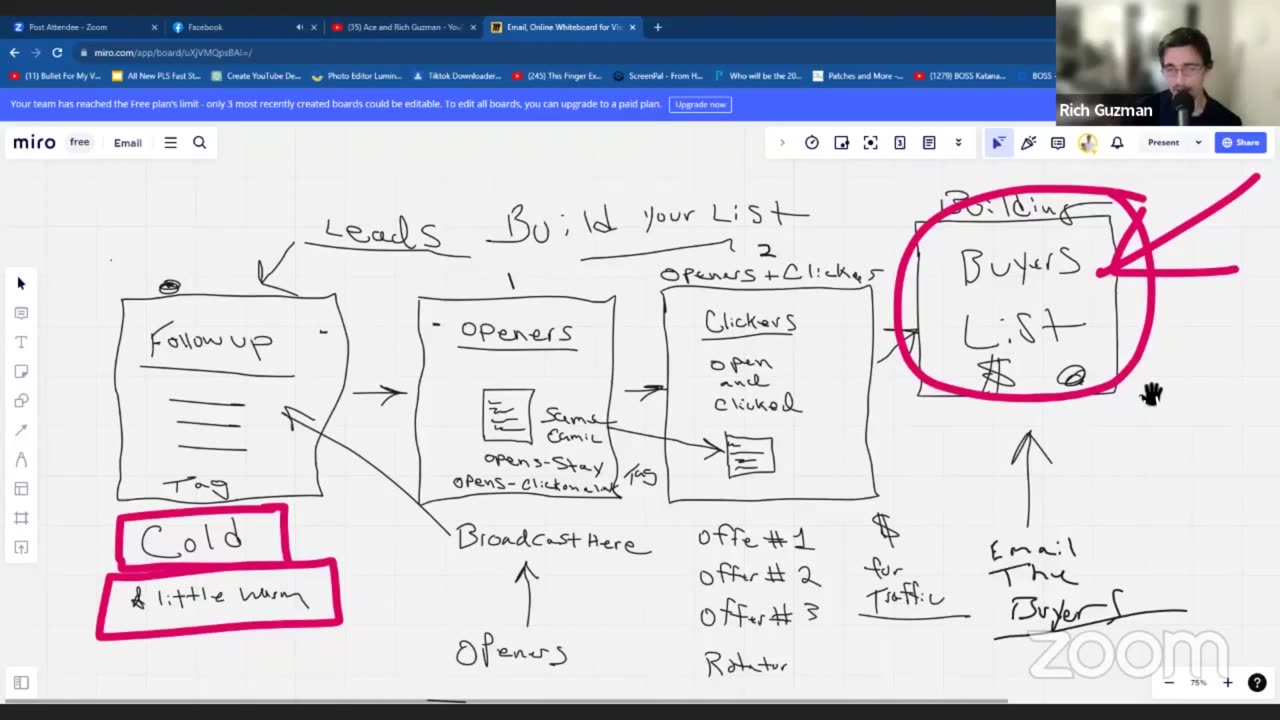 Post Attendee - Zoom
Facebook
(35) Ace and Rich Guzman - You
Email, Online Whiteboard for Vis
miro.com/app/board/uXjVMQpsBAI=/
(11) Bullet For My V...
All New PLS Fast St...
Create YouTube De...
Photo Editor Lumin...
Tiktok Downloader...
(245) This Finger Ex...
ScreenPal - From H...
Who will be the 20...
Patches and More -...
(1279) BOSS Katana...
BOSS -
Your team has reached the Free plan's limit - only 3 most recently created boards could be editable. To edit all boards, you can upgrade to a paid plan.
Upgrade now
Rich Guzman
miro
free
Email
Present
Share
Leads
Build Your List
Building
Buyers
List
$
1
2
Openers + Clickers
Follow up
Tag
Openers
Same
Email
Opens-Stay
Opens-Click on a link
Tag
Clickers
open
and
clicked
Cold
A little warm
Broadcast Here
Openers
Offe #1
Offer #2
Offer #3
Rotator
$
for
Traffic
Email
The
Buyers
zoom
75%